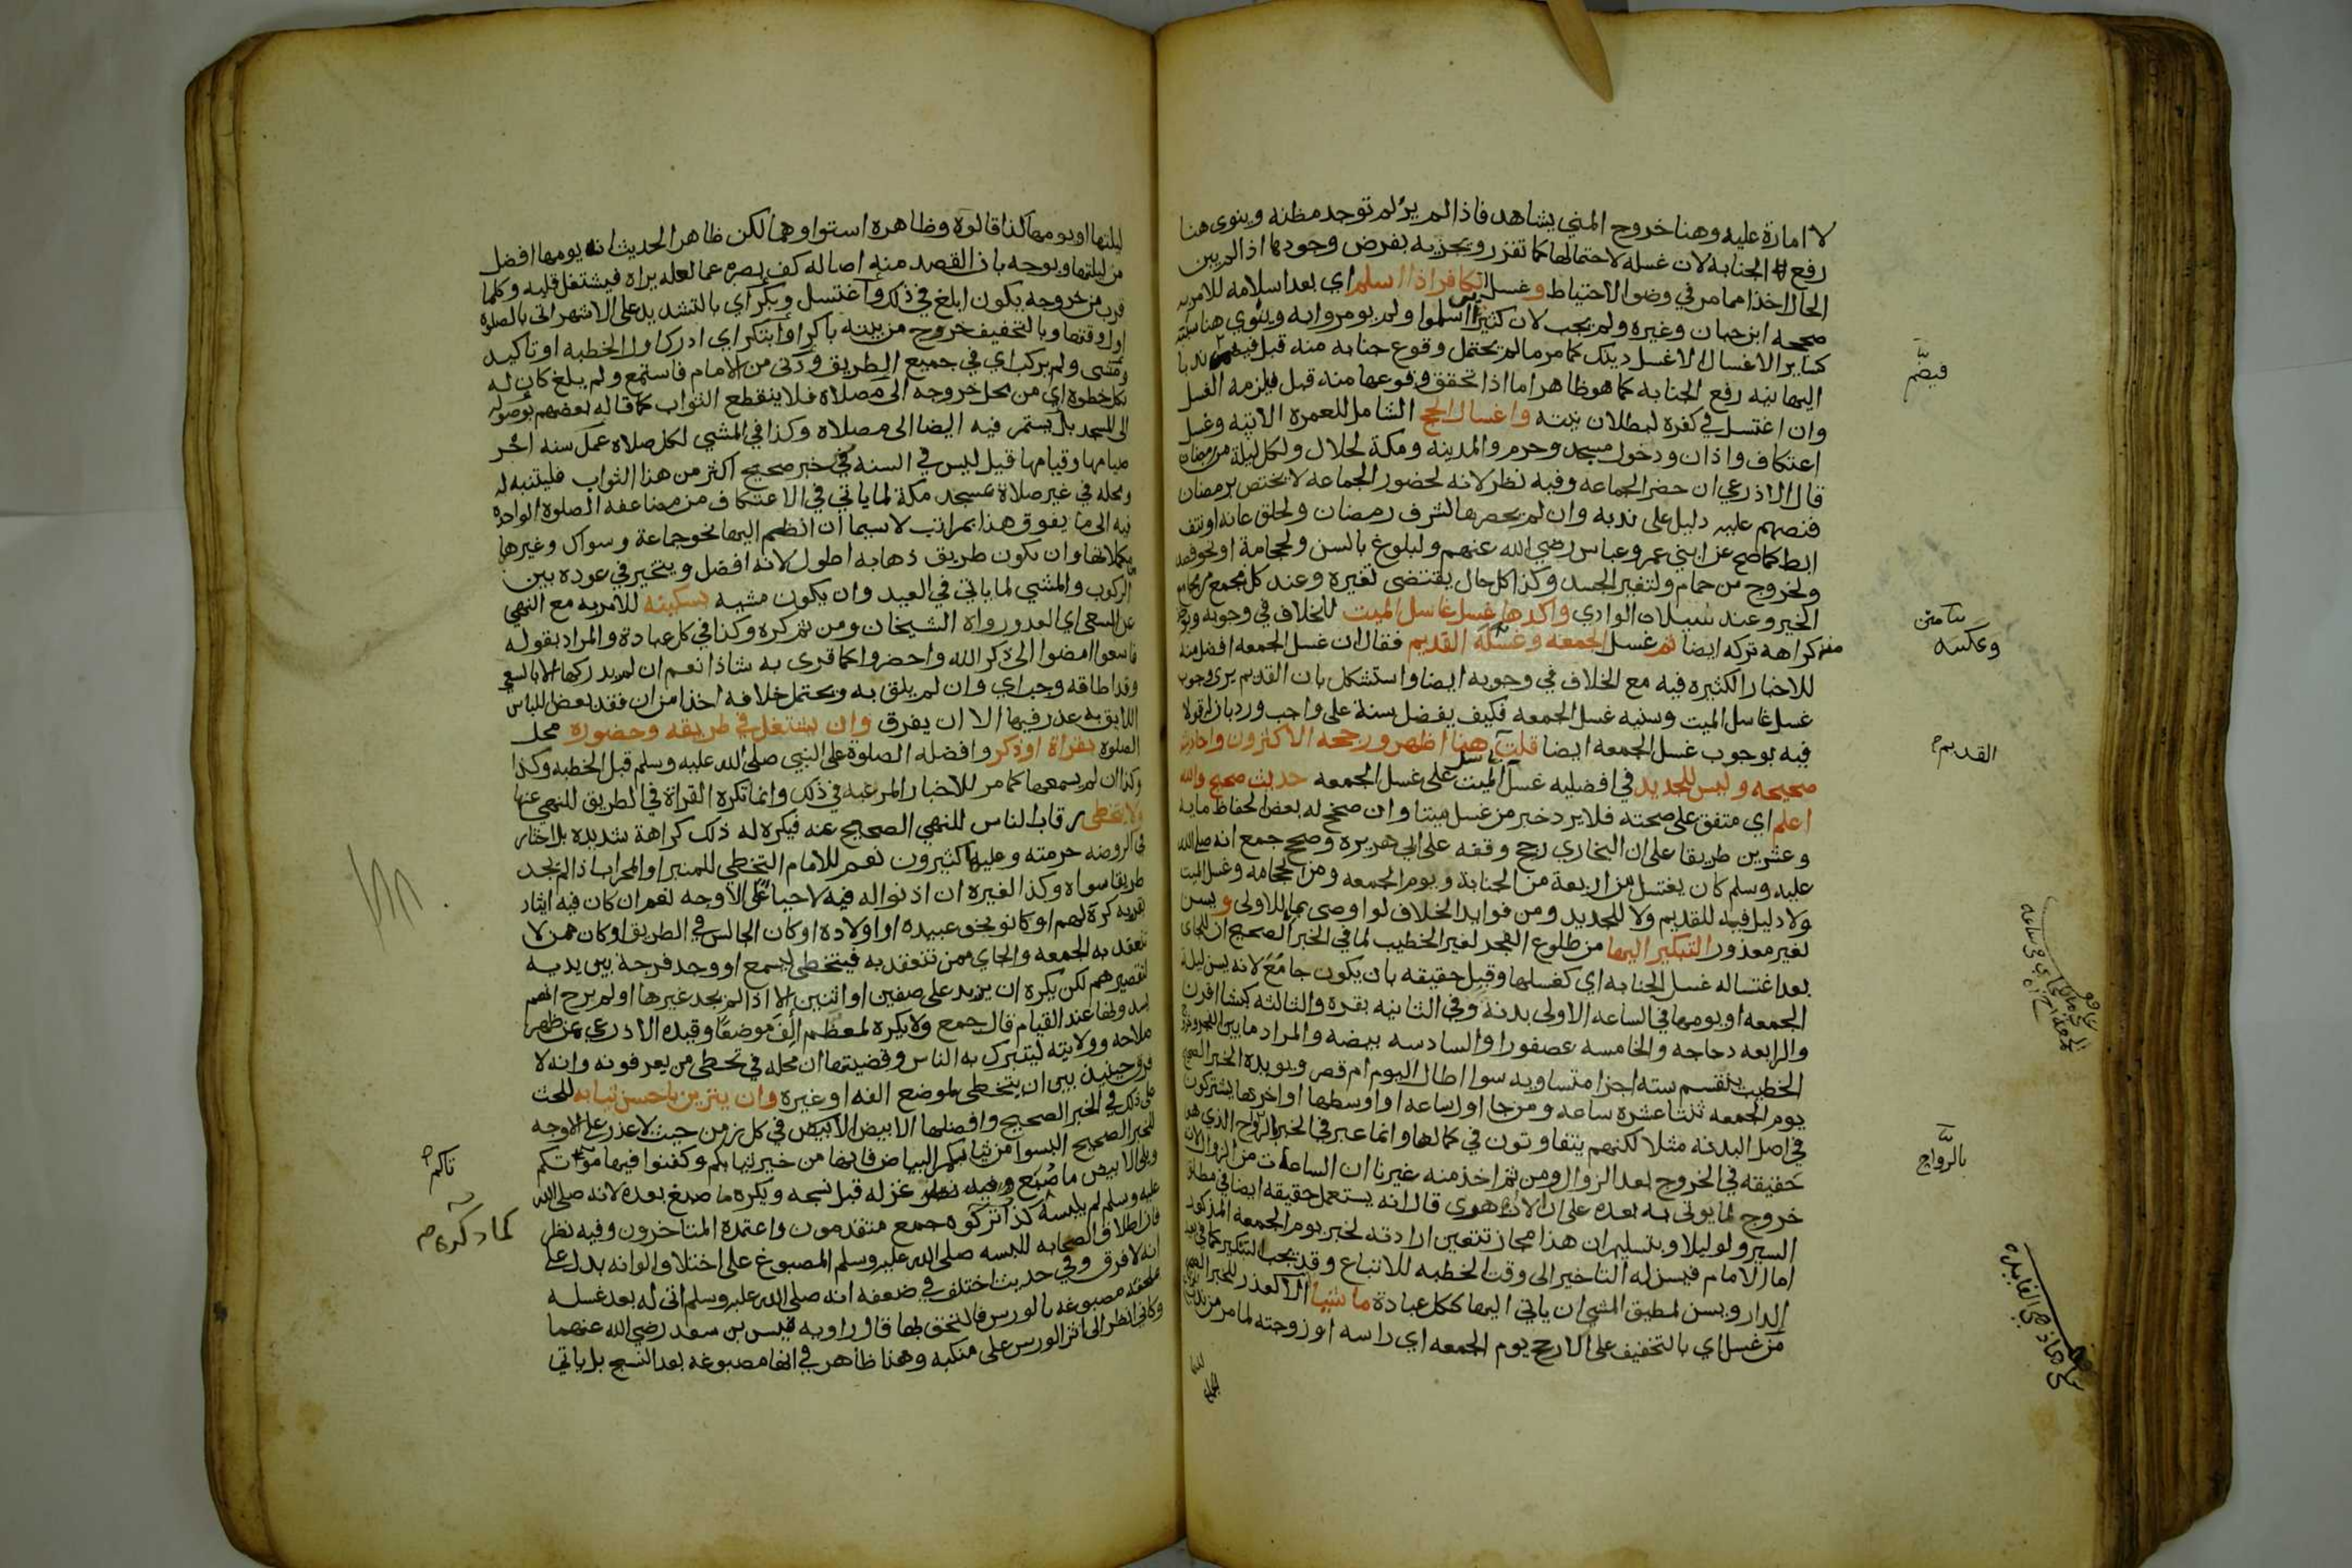 لا امارة عليه وهنا خروج المني يشاهد فاذا لم ير لم توجد مظنة وينوي هنا
رفع الجنابه لان غسله لاحتمالها كما تقرر ويجزيه بفرض وجودها اذا لم يبن
الحال اخذا مما مر في وضو الاحتياط وغسل الكافر اذا اسلم اي بعد اسلامه للامر به
صححه ابن حبان وغيره ولم يجب لان كثيرا اسلموا ولم يومروا به وينوي هنا سببه
كساير الاغسال الا غسل ذينك كما مر ما لم يحتمل وقوع جنابه منه قبل فيضم ندبا
اليها نية رفع الجنابه كما هو ظاهر اما اذا تحقق وقوعها منه قبل فيلزمه الغسل
وان اغتسل في كفره لبطلان نيته واغسال الحج الشامل للعمره الاتية وغسل
اعتكاف واذان ودخول مسجد وحرم والمدينه ومكة لحلال ولكل ليلة من رمضان
قال الاذرعي ان حضر الجماعه وفيه نظر لانه لحضور الجماعه لا يختص برمضان
فنصهم عليه دليل على ندبه وان لم يحضرها لشرف رمضان ولحلق عانه او نتف
ابط كما صح عن ابني عمر وعباس رضي الله عنهم ولبلوغ بالسن ولحجامة او نحو فصد
ولخروج من حمام ولتغير الجسد وكذا كل حال يقتضي تغيره وعند كل مجمع من مجامع
الخير وعند سيلان الوادي واكدها غسل غاسل الميت للخلاف في وجوبه
كراهه تركه ايضا ثم غسل الجمعه وعكسه القديم فقال ان غسل الجمعه افضل منه
للاخبار الكثيره فيه مع الخلاف في وجوبه ايضا واستشكل بان القديم يرى وجوب
غسل غاسل الميت وسنيه غسل الجمعه فكيف يفضل سنة على واجب ورد بان له قولا
فيه بوجوب غسل الجمعه ايضا قلت القديم هنا اظهر ورجحه الاكثرون واحاديثه
صحيحه وليس للجديد في افضليه غسل غاسل الميت على غسل الجمعه حديث صحيح والله
اعلم اي متفق على صحته فلا يرد خبر من غسل ميتا وان صحح له بعض الحفاظ مايه
وعشرين طريقا على ان البخاري رجح وقفه على ابي هريره وصحح جمع انه صلى الله
عليه وسلم كان يغتسل من اربعة من الجنابة ويوم الجمعه ومن الحجامه وغسل الميت
ولا دليل فيه للقديم ولا للجديد ومن فوايد الخلاف لو اوصى بما للاولى ويسن
لغير معذور التبكير اليها من طلوع الفجر لغير الخطيب لما في الخبر الصحيح ان للجاي
بعد اغتساله غسل الجنابه اي كغسلها وقيل حقيقه بان يكون جامع لانه يسن ليلة
الجمعه او يومها في الساعه الاولى بدنه وفي الثانيه بقره والثالثه كبشا اقرن
والرابعه دجاجه والخامسه عصفورا والسادسه بيضه والمراد ما بين الفجر وخروج
الخطيب ينقسم سته اجزا متساويه سوا اطال اليوم ام قصر ويويده الخبر الصحيح
يوم الجمعه ثنتا عشره ساعه ومن جا اول ساعه او اوسطها او اخرها يشتركون
في اصل البدنه مثلا لكنهم يتفاوتون في كمالها وانما عبر في الخبر بالرواح الذي هو
حقيقه في الخروج بعد الزوال ومن ثم اخذ منه غيرنا ان الساعات من الزوال لان
خروج لما يوتى به بعده على ان الازهري قال انه يستعمل حقيقه ايضا في مطلق
السير ولو ليلا وبتسليم ان هذا مجاز تتعين ارادته لخبر يوم الجمعه المذكور
اما الامام فيسن له التاخير الى وقت الخطبه للاتباع وقد يجب التبكير كما في بعيد
الدار ويسن لمطيق المشي ان ياتي اليها ككل عبادة ماشيا الا لعذر للخبر الصحيح
من غسل اي بالتخفيف على الارجح يوم الجمعه اي راسه او زوجته لما مر من ندب
فيضم
سامتن
وعكسه
القديم
بالرواح
ليلتها او يومها كذا قالوه وظاهره استواوهما لكن ظاهر الحديث انه يومها افضل
من ليلتها ويوجه بان القصد منه اصاله كف بصره عما لعله يراه فيشتغل قلبه وكلما
قرب من خروجه يكون ابلغ في ذلك واغتسل وبكر اي بالتشديد على الاشهر اتى بالصلوة
اول وقتها وبالتخفيف خرج من بيته باكرا وابتكر اي ادرك اول الخطبه او تاكيد
ومشى ولم يركب اي في جميع الطريق ودنى من الامام فاستمع ولم يلغ كان له
بكل خطوة اي من محل خروجه الى مصلاه فلا ينقطع الثواب كما قاله بعضهم بوصوله
الى المسجد بل يستمر فيه ايضا الى مصلاه وكذا في المشي لكل صلاة عمل سنه اجر
صيامها وقيامها قيل ليس في السنه في خبر صحيح اكثر من هذا الثواب فليتنبه له
ومحله في غير صلاة بمسجد مكة لما ياتي في الاعتكاف من مضاعفه الصلوة الواحده
فيه الى ما يفوق هذا بمراتب لا سيما ان انظم اليها نحو جماعة وسواك وغيرها
من مكملاتها وان يكون طريق ذهابه اطول لانه افضل ويتخير في عوده بين
الركوب والمشي لما ياتي في العيد وان يكون مشيه بسكينه للامر به مع النهي
عن السعي اي العدو رواه الشيخان ومن ثم كره وكذا في كل عبادة والمراد بقوله
فاسعوا امضوا الى ذكر الله واحضروا كما قرى به شاذا نعم ان لم يدركها الا بالسعي
وقد اطاقه وجب اي وان لم يلق به ويحتمل خلافه اخذا من ان فقد بعض اللباس
اللايق به عذر فيها الا ان يفرق وان يشتغل في طريقه وحضوره محل
الصلوة بقراة او ذكر وافضله الصلوة على النبي صلى الله عليه وسلم قبل الخطبه وكذا
وكذا ان لم يسمعها كما مر للاخبار المرغبه في ذلك وانما تكره القراة في الطريق للنهي عنها
ولا يتخطى رقاب الناس للنهي الصحيح عنه فيكره له ذلك كراهة شديده بل اختار
في الروضه حرمته وعليها كثيرون نعم للامام التخطي للمنبر او المحراب اذا لم يجد
طريقا سواه وكذا لغيره ان اذنوا له فيه لا حيا على الاوجه نعم ان كان فيه ايثار
بقربه كره لهم او كانو نحو عبيده او اولاده او كان الجالس في الطريق او كان ممن لا
تنعقد به الجمعه والجاي ممن تنعقد به فيتخطى ليسمع او وجد فرجة بين يديه
لتقصيرهم لكن يكره ان يزيد على صفين او اثنين الا اذا لم يجد غيرها او لم يرج انهم
يسدونها عند القيام قال جمع ولا يكره لمعظم الف موضعا وقيده الاذرعي بمن ظهر
صلاحه وولايته ليتبرك به الناس وقضيتها ان محله في تخطي من يعرفونه وانه لا
فرق حينئذ بين ان يتخطى لموضع الفه او غيره وان يتزين باحسن ثيابه للحث
على ذلك في الخبر الصحيح وافضلها الابيض في كل زمن حيث لا عذر على الاوجه
للخبر الصحيح البسوا من ثيابكم البياض فانها من خير ثيابكم وكفنوا فيها موتاكم
ويلي الابيض ما صبغ غزله قبل نسجه ويكره ما صبغ بعده لانه صلى الله
عليه وسلم لم يلبسه كذا ذكره جمع متقدمون واعتمده المتاخرون وفيه نظر
فان اطلاق الصحابه للبسه صلى الله عليه وسلم المصبوغ على اختلاف الوانه يدل على
انه لا فرق وفي حديث اختلف في ضعفه انه صلى الله عليه وسلم اتى له بعد غسله
ملحفه مصبوغه بالورس فالتحق بها قال راويه قيس بن سعد رضي الله عنهما
وكاني انظر الى اثر الورس على منكبه وهذا ظاهر في انها مصبوغه بعد النسج بل ياتي
كما ذكره